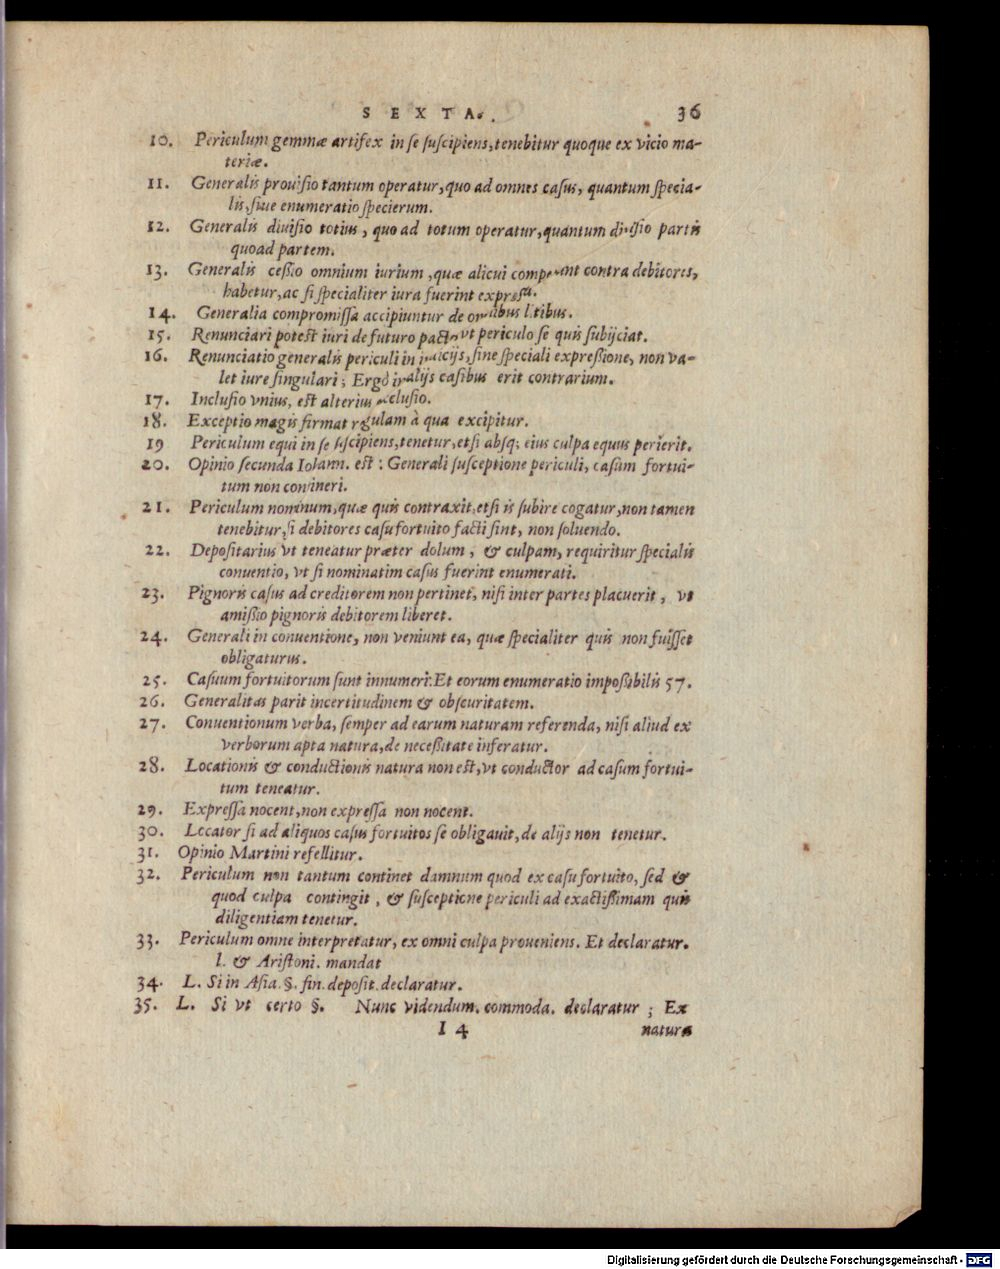 SEXTA. 36
10. Periculum gemmæ artifex in se suscipiens, tenebitur quoque ex vicio ma-
teriæ.
11. Generalis prouisio tantum operatur, quo ad omnes casus, quantum specia-
lis, siue enumeratio specierum.
12. Generalis diuisio totius, quo ad totum operatur, quantum diuisio partis
quoad partem.
13. Generalis cessio omnium iurium, quæ alicui competunt contra debitores,
habetur, ac si specialiter iura fuerint expressa.
14. Generalia compromissa accipiuntur de omnibus litibus.
15. Renunciari potest iuri de futuro pacto, vt periculo se quis subijciat.
16. Renunciatio generalis periculi in iudicijs, sine speciali expressione, non va-
let iure singulari; Ergò in alijs casibus erit contrarium.
17. Inclusio vnius, est alterius exclusio.
18. Exceptio magis firmat regulam à qua excipitur.
19 Periculum equi in se suscipiens, tenetur, etsi absq; eius culpa equus perierit.
20. Opinio secunda Iohann. est: Generali susceptione periculi, casum fortui-
tum non contineri.
21. Periculum nominum, quæ quis contraxit, etsi is subire cogatur, non tamen
tenebitur, si debitores casu fortuito facti sint, non soluendo.
22. Depositarius vt teneatur præter dolum, & culpam, requiritur specialis
conuentio, vt si nominatim casus fuerint enumerati.
23. Pignoris casus ad creditorem non pertinet, nisi inter partes placuerit, vt
amissio pignoris debitorem liberet.
24. Generali in conuentione, non veniunt ea, quæ specialiter quis non fuisset
obligaturus.
25. Casuum fortuitorum sunt innumeri: Et eorum enumeratio impossibilis 57.
26. Generalitas parit incertitudinem & obscuritatem.
27. Conuentionum verba, semper ad earum naturam referenda, nisi aliud ex
verborum apta natura, de necessitate inferatur.
28. Locationis & conductionis natura non est, vt conductor ad casum fortui-
tum teneatur.
29. Expressa nocent, non expressa non nocent.
30. Locator si ad aliquos casus fortuitos se obligauit, de alijs non tenetur.
31. Opinio Martini refellitur.
32. Periculum non tantum continet damnum quod ex casu fortuito, sed &
quod culpa contingit, & susceptione periculi ad exactissimam quis
diligentiam tenetur.
33. Periculum omne interpretatur, ex omni culpa proueniens. Et declaratur.
l. & Aristoni. mandat
34. L. Si in Asia. §. fin. deposit. declaratur.
35. L. Si vt certo §. Nunc videndum. commoda. declaratur; Ex
I 4 natura
Digitalisierung gefördert durch die Deutsche Forschungsgemeinschaft - DFG